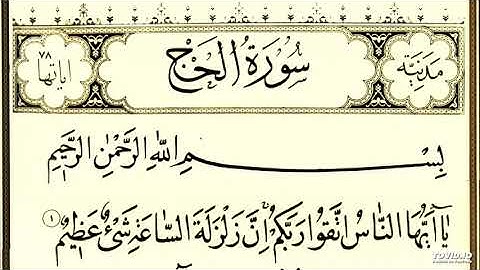 مدنيّة سُورَةُ الحَجّ اٰياتها ٧٨
بِسْمِ اللهِ الرَّحْمٰنِ الرَّحِيمِ
يَا اَيُّهَا النَّاسُ اتَّقُوا رَبَّكُمْ اِنَّ زَلْزَلَةَ السَّاعَةِ شَىْءٌ عَظِيمٌ ١
TOVID.IO